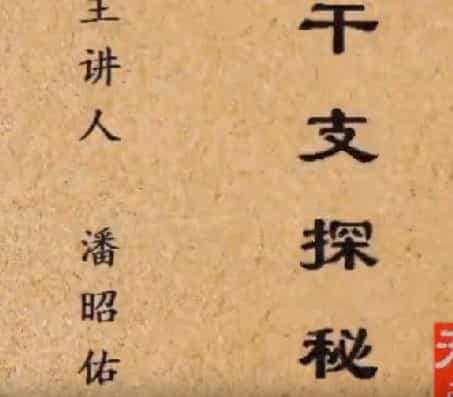 干支探秘
主讲人 潘昭佑